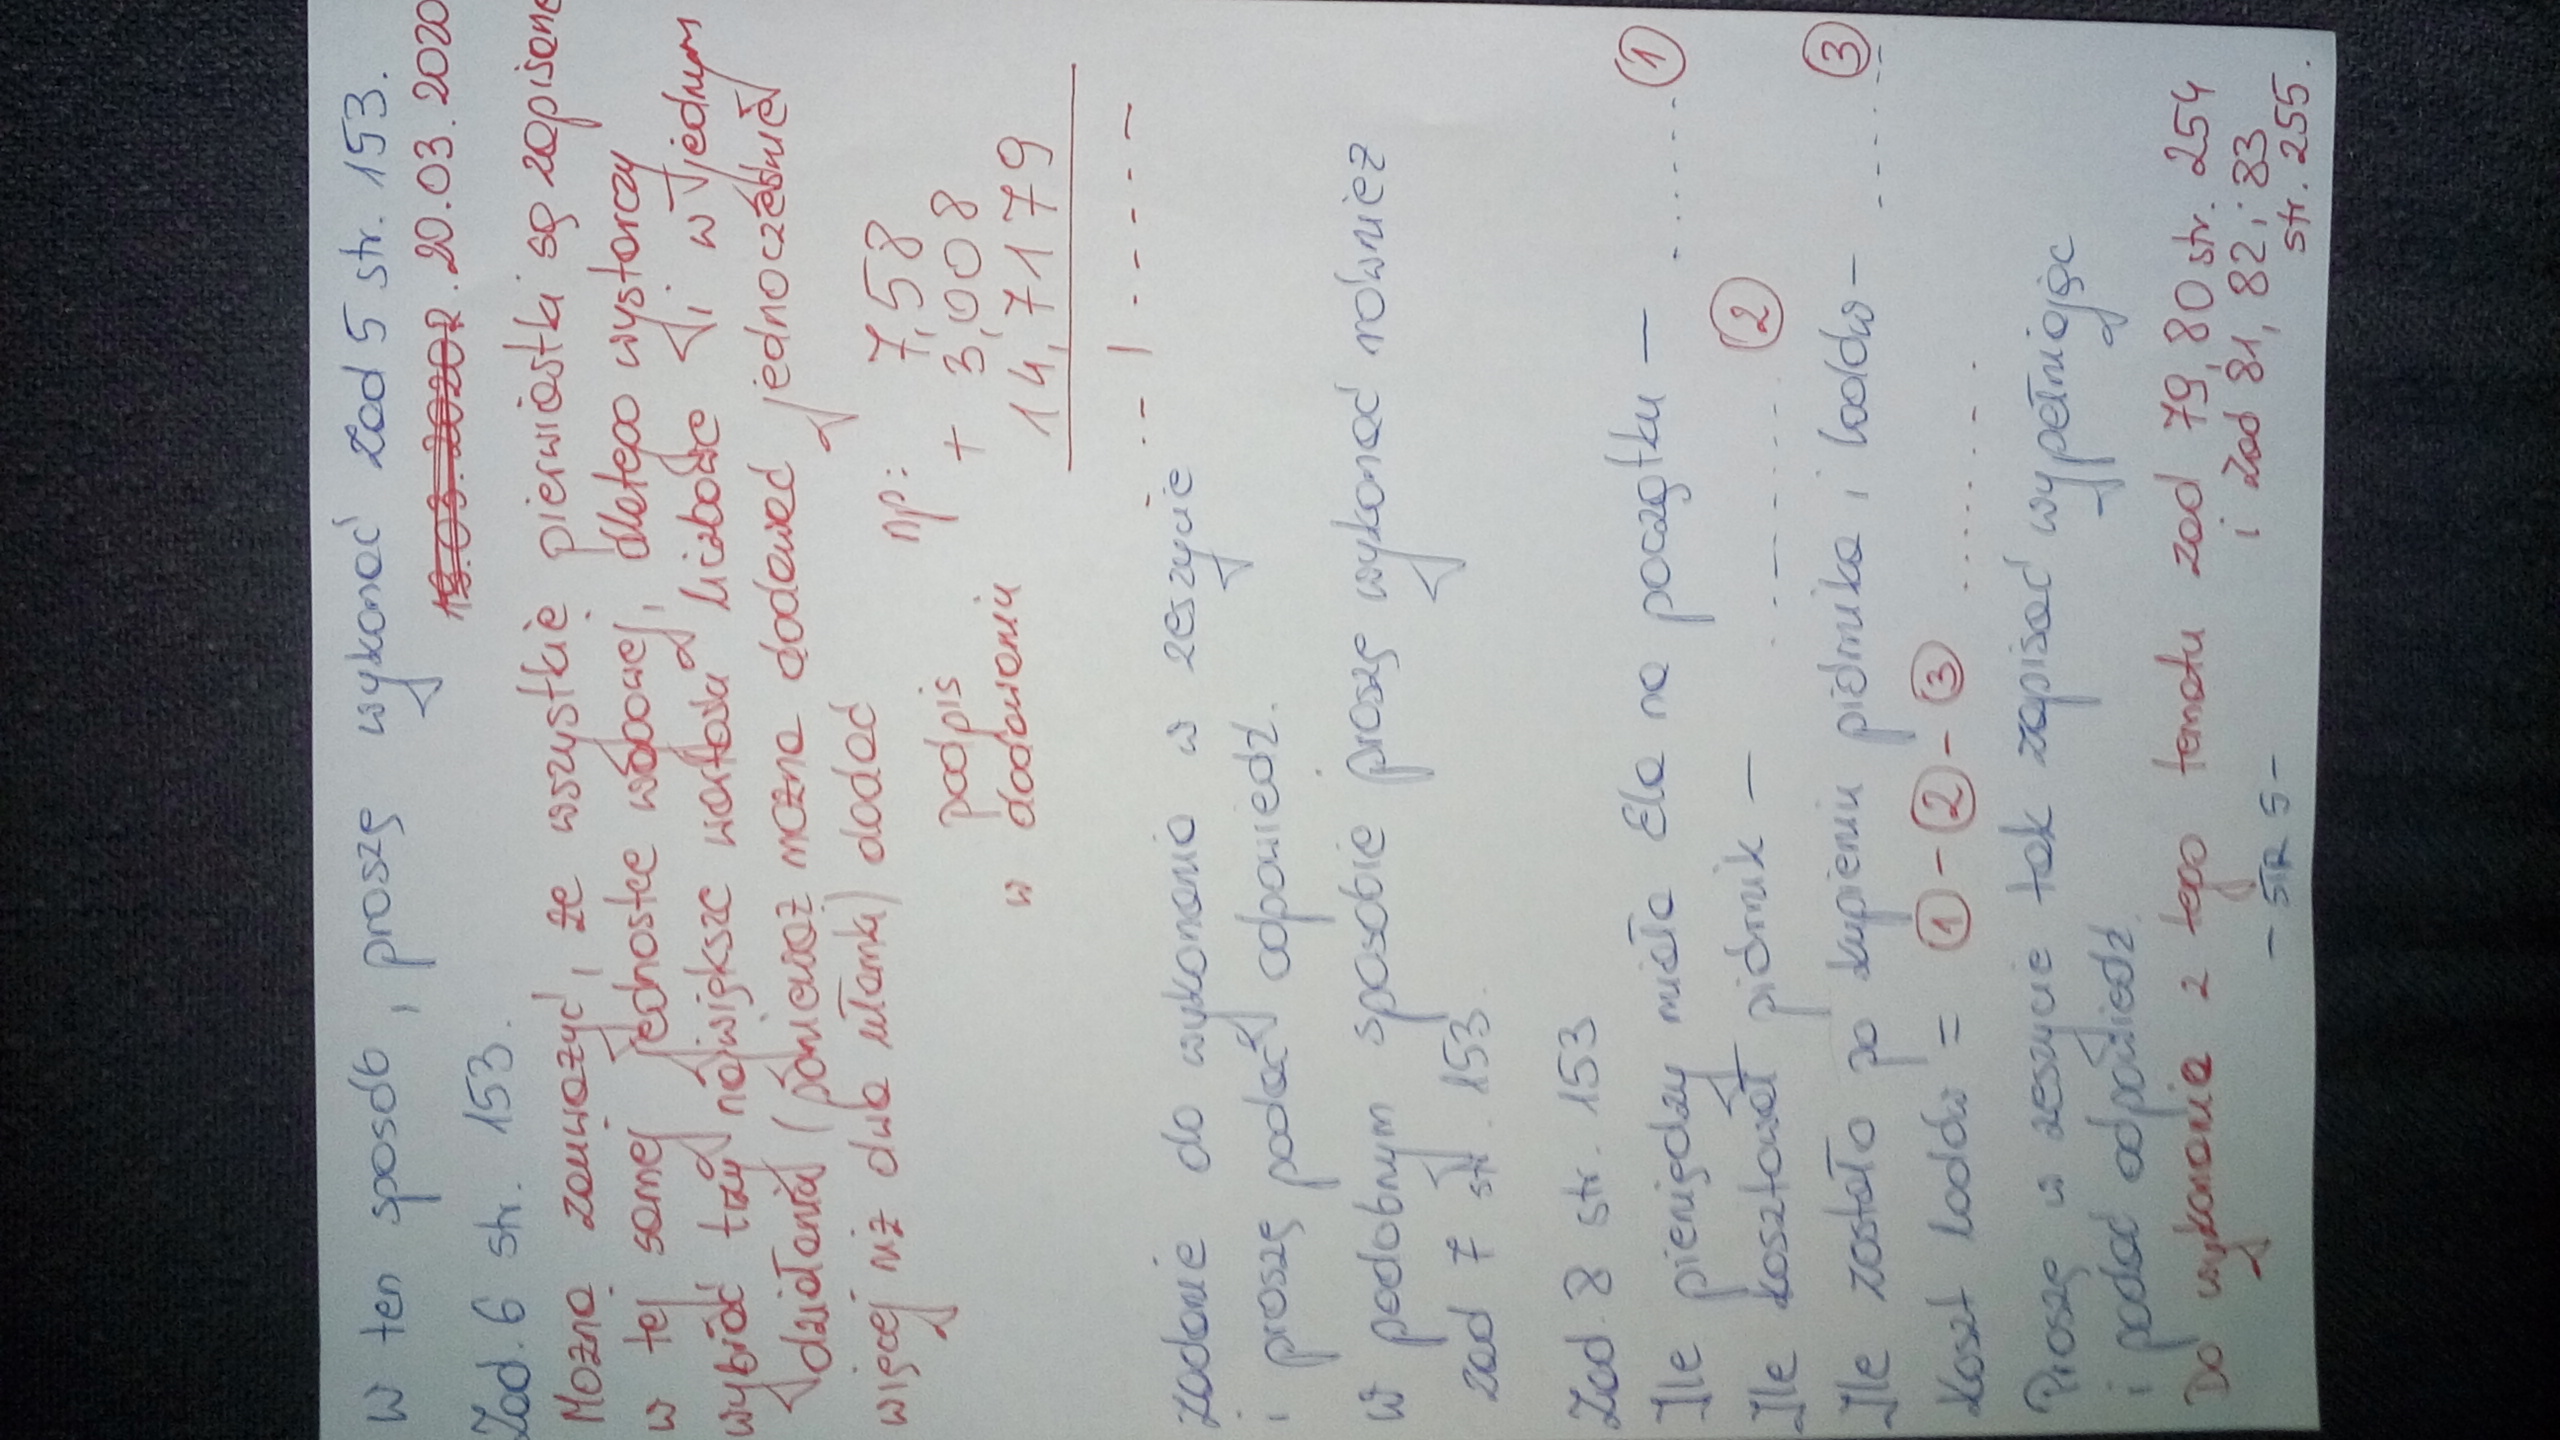 w ten sposób, proszę wykonać zad 5 str. 153.
20.03.2020
Zad. 6 str. 153.
Można zauważyć, że wszystkie pierwiastki są zapisane
w tej samej jednostce wagowej, dlatego wystarczy
wybrać trzy największe wartości liczbowe i w jednym
działaniu (ponieważ można dodawać jednocześnie
więcej niż dwa ułamki) dodać
np: 7,58
podpis + 3,008
w dodawaniu 14,7179
zadanie do wykonania w zeszycie
i proszę podać odpowiedź.
w podobnym sposobie proszę wykonać również
zad 7 str. 153.
Zad. 8 str. 153
Ile pieniędzy miała Ela na początku – - ..... 1
Ile kosztował piórnik – ....... 2
Ile zostało po kupieniu piórnika i lodów – ....... 3
Koszt lodów = 1 - 2 - 3 .......
Proszę w zeszycie tak zapisać wypełniając
i podać odpowiedź.
Do wykonania z tego tematu zad 79, 80 str. 254
i zad 81, 82 i 83
str. 255.
- STR 5 -